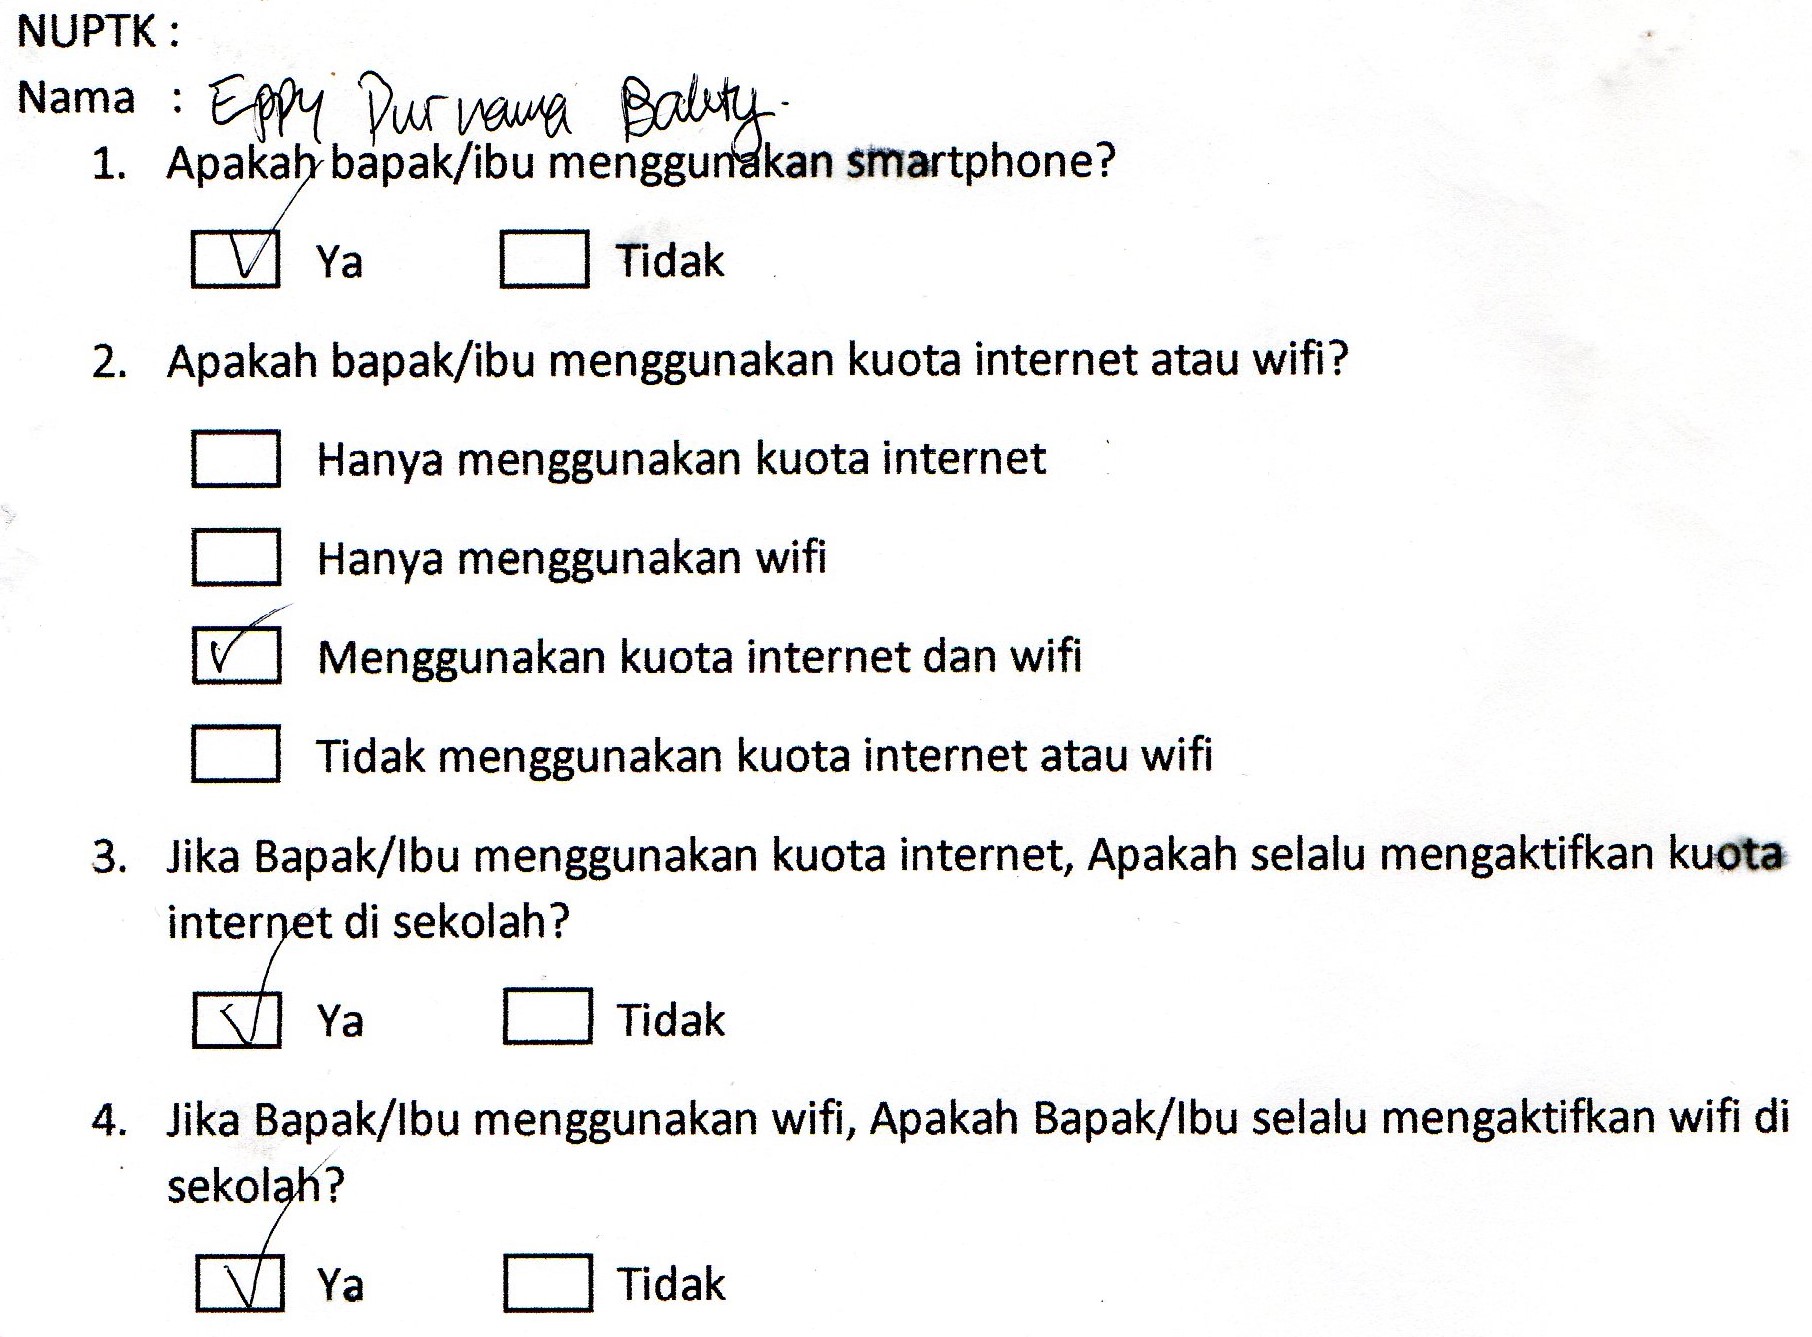 NUPTK :
Nama : Eppy Purnama
1. Apakah bapak/ibu menggunakan smartphone?
Ya Tidak
2. Apakah bapak/ibu menggunakan kuota internet atau wifi?
Hanya menggunakan kuota internet
Hanya menggunakan wifi
Menggunakan kuota internet dan wifi
Tidak menggunakan kuota internet atau wifi
3. Jika Bapak/Ibu menggunakan kuota internet, Apakah selalu mengaktifkan kuota
internet di sekolah?
Ya Tidak
4. Jika Bapak/Ibu menggunakan wifi, Apakah Bapak/Ibu selalu mengaktifkan wifi di
sekolah?
Ya Tidak